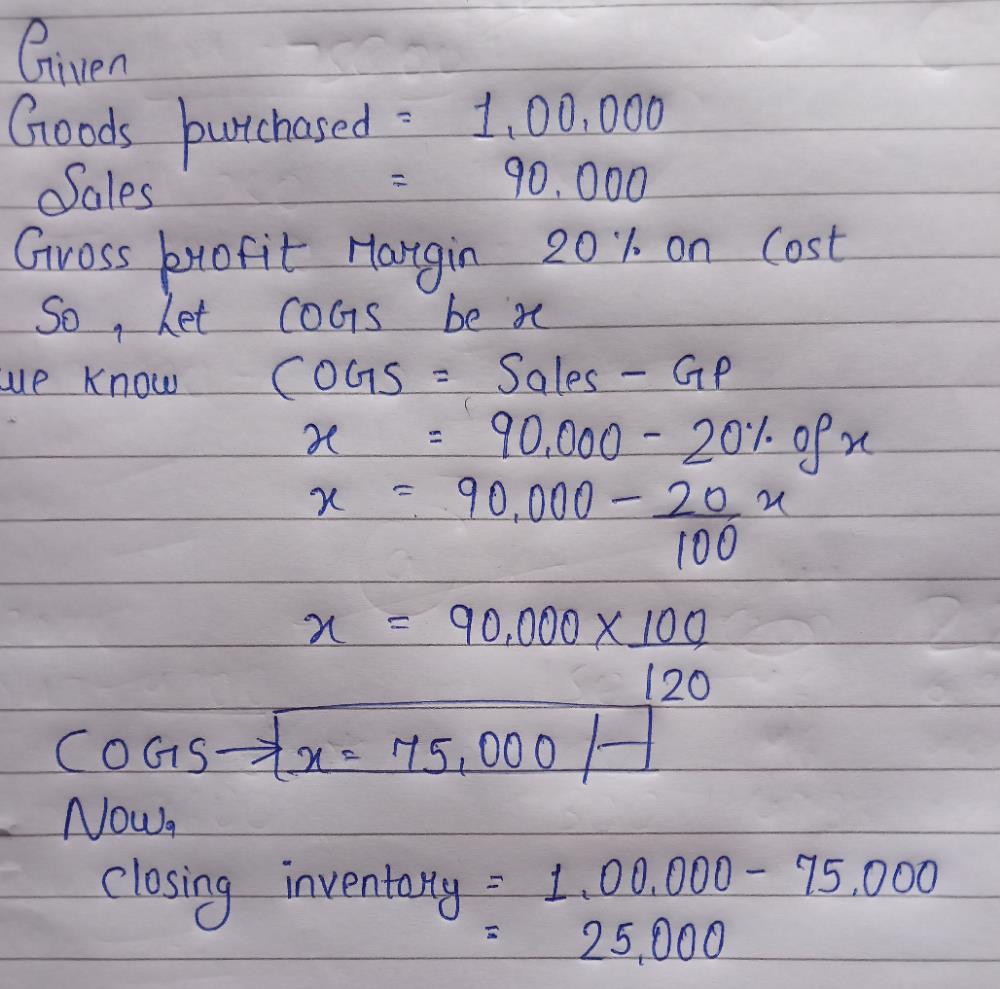 Given
Goods purchased = 1,00,000
Sales = 90,000
Gross profit Margin 20% on Cost
So, Let COGS be x
we know COGS = Sales - GP
x = 90,000 - 20% of x
x = 90,000 - 20/100 x
x = 90,000 × 100/120
COGS → x = 75,000/-
Now,
Closing inventory = 1,00,000 - 75,000
= 25,000